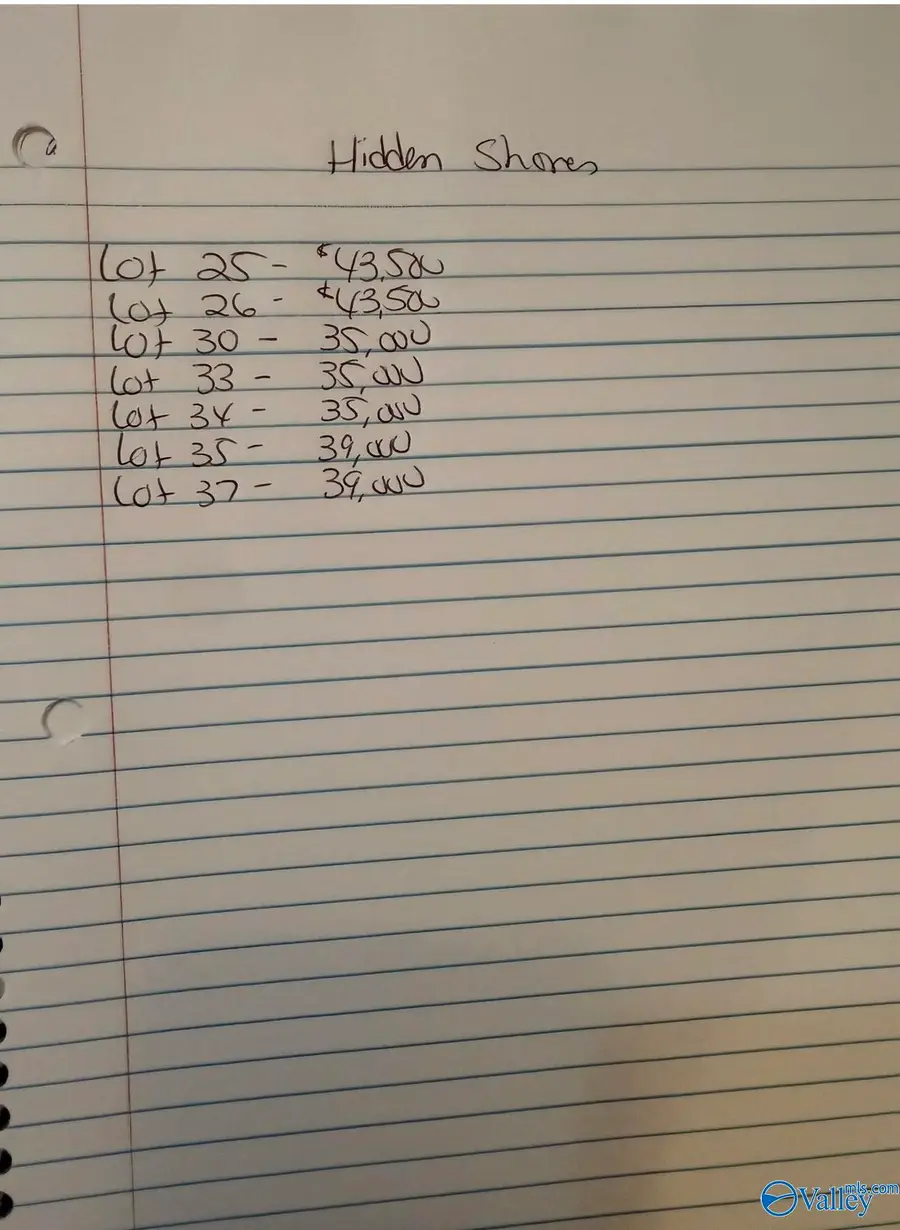 Hidden Shores
Lot 25 - $43,500
Lot 26 - $43,500
Lot 30 - 35,000
Lot 33 - 35,000
Lot 34 - 35,000
Lot 35 - 39,000
Lot 37 - 39,000
Valleymls.com